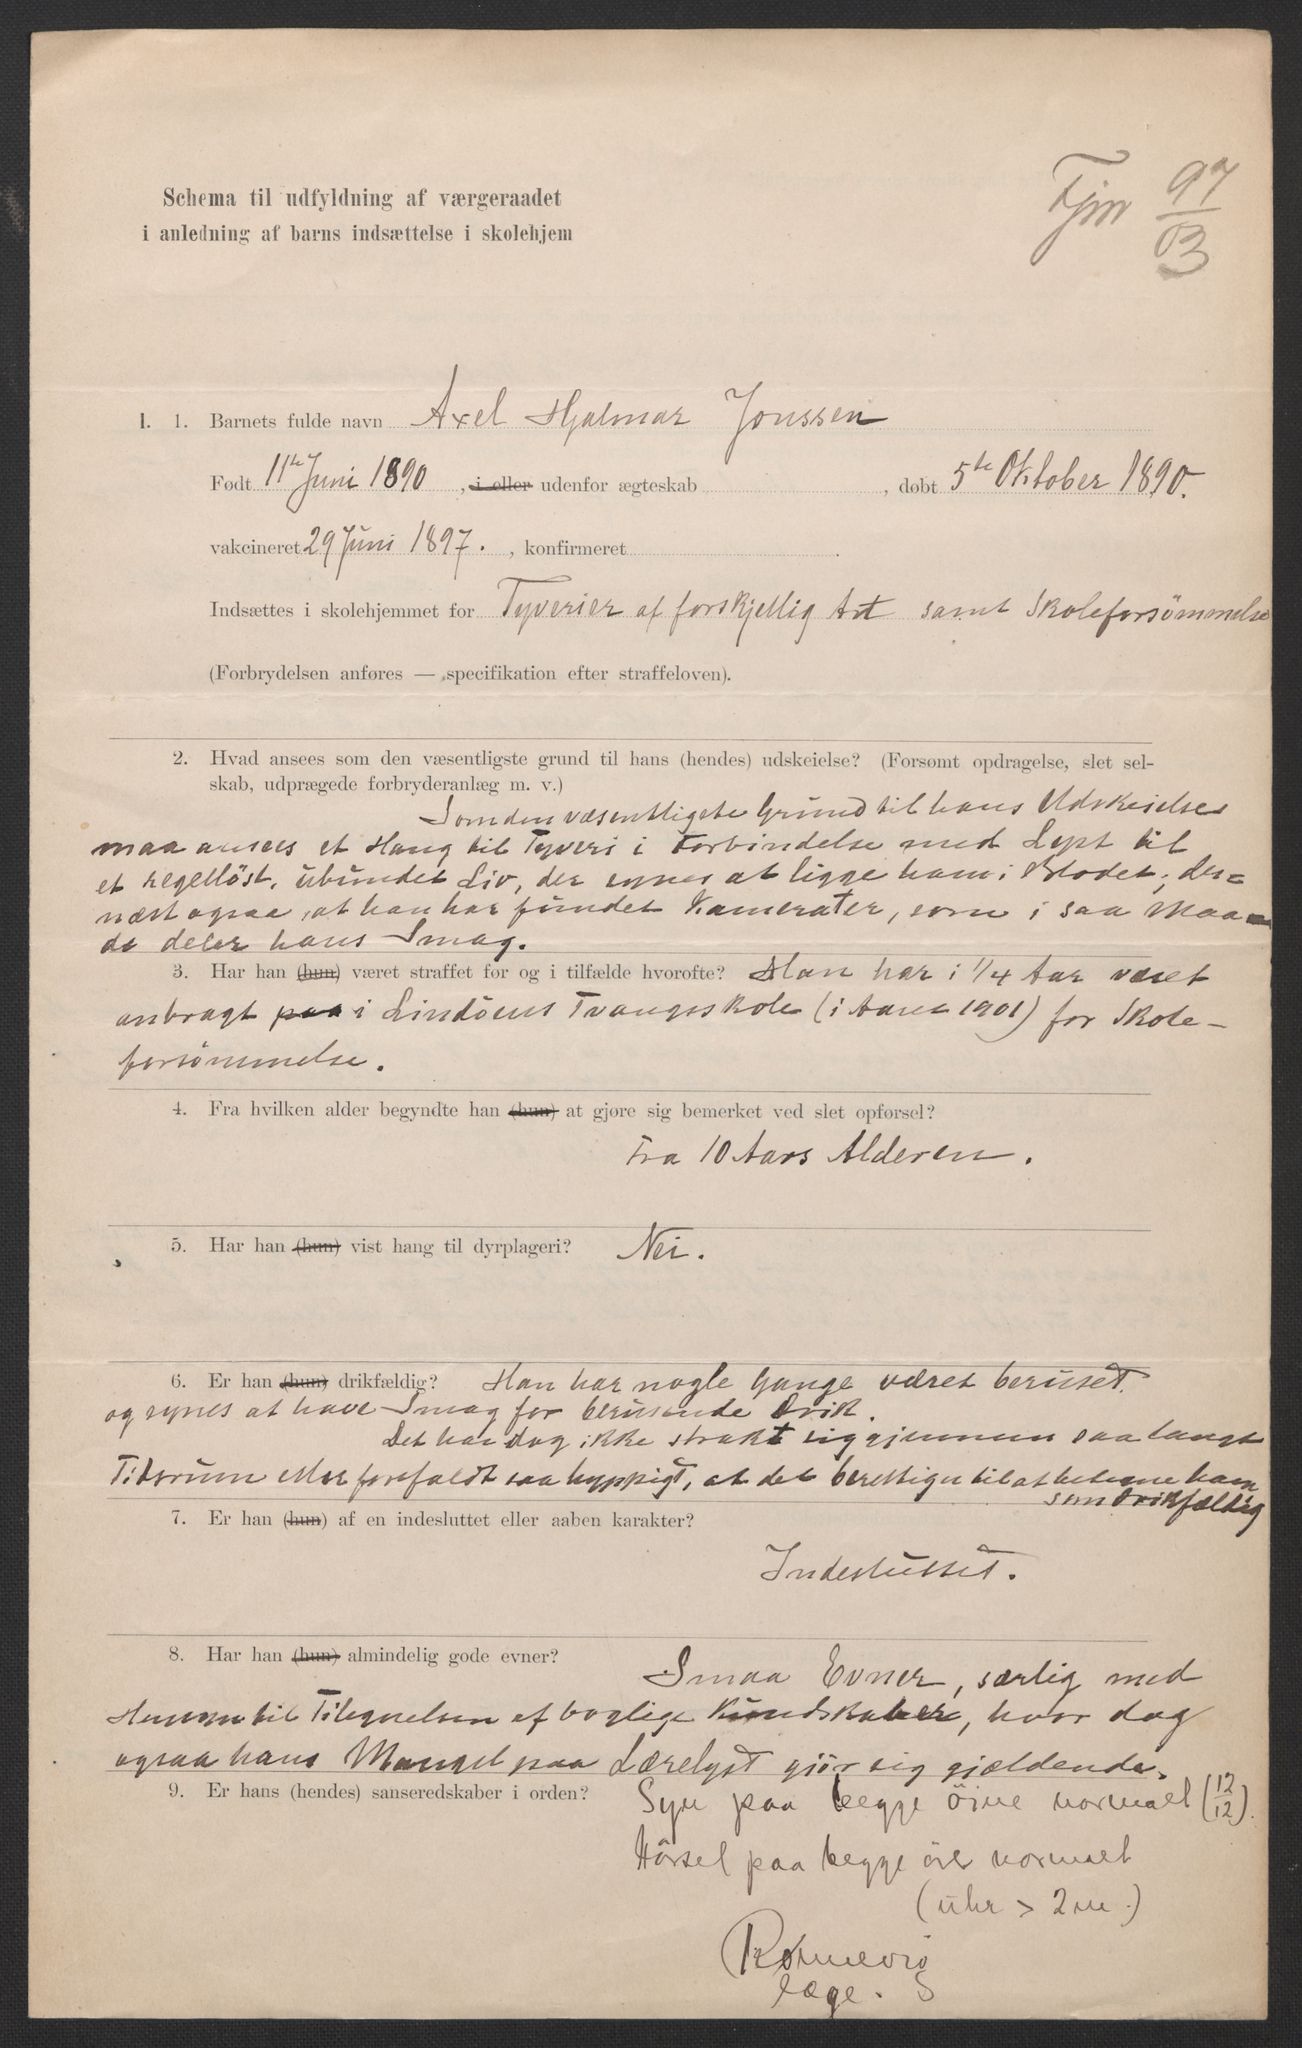 Fjm 97/03
Schema til udfyldning af værgeraadet
i anledning af barns indsættelse i skolehjem
I. 1. Barnets fulde navn Axel Hjalmar Jonssen
Født 11te Juni 1890, i eller udenfor ægteskab , døbt 5te Oktober 1890.
vakcineret 29 Juni 1897. , konfirmeret .
Indsættes i skolehjemmet for Tyverier af forskjellig Art samt Skoleforsömmelse
(Forbrydelsen anføres — specifikation efter straffeloven).
2. Hvad ansees som den væsentligste grund til hans (hendes) udskeielse? (Forsømt opdragelse, slet sel-
skab, udprægede forbryderanlæg m. v.)
Som den væsentligste Grund til hans Udskeielser
maa ansees et Hang til Tyveri i Forbindelse med Lyst til
et regellöst, ubundet Liv, der synes at ligge ham i Blodet; der=
næst ogsaa, at han har fundet Kamerater, som i saa Maa-
de deler hans Smag.
3. Har han (hun) været straffet før og i tilfælde hvorofte? Han har i 1/4 Aar været
anbragt paa i Lindöens Tvangsskole (i Aaret 1901) for Skole-
forsömmelse.
4. Fra hvilken alder begyndte han (hun) at gjøre sig bemerket ved slet opførsel?
Fra 10 Aars Alderen.
5. Har han (hun) vist hang til dyrplageri? Nei.
6. Er han (hun) drikfældig? Han har nogle Gange været beruset,
og synes at have Smag for berusende Drik.
Det har dog ikke strakt sig gjennem saa langt
Tidsrum eller forefaldt saa hyppigt, at det berettiger til at betegne ham
som drikfældig
7. Er han (hun) af en indesluttet eller aaben karakter?
Indesluttet.
8. Har han (hun) almindelig gode evner?
Smaa Evner, særlig med
Hensyn til Tilegnelsen af boglige Kundskaber, hvor dog
ogsaa hans Mangel paa Lærelyst gjör sig gjældende.
9. Er hans (hendes) sanseredskaber i orden? Syn paa begge öine normalt (12/12).
Hörsel paa begge öre normalt
(uhr > 2 m.)
læge.